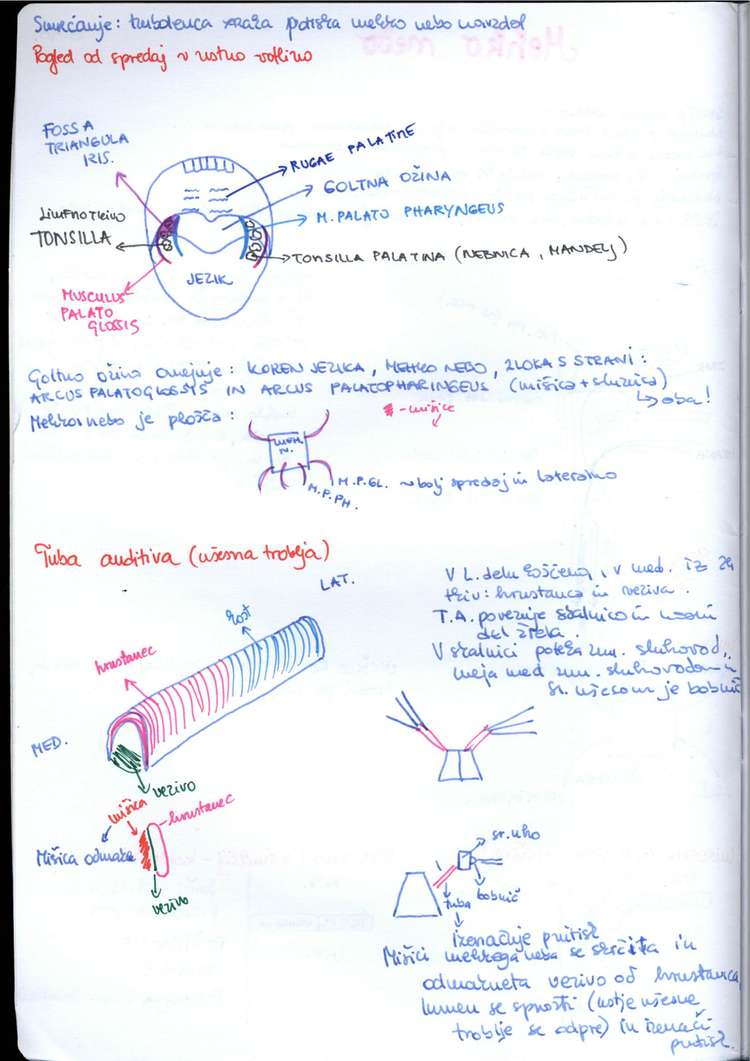 Smrčanje: turbulenca zraka potiska mehko nebo navzdol
Pogled od spredaj v ustno votlino
FOSSA
TRIANGULA
RIS.
RUGAE PALATINE
GOLTNA OŽINA
M. PALATO PHARYNGEUS
LIMFNO TKIVO
TONSILLA
TONSILLA PALATINA (NEBNICA, MANDELJ)
JEZIK
MUSCULUS
PALATO
GLOSSIS
Goltno ožino omejuje: KOREN JEZIKA, MEHKO NEBO, 2 LOKA S STRANI:
ARCUS PALATOGLOSSYS IN ARCUS PALATOPHARINGEUS (mišica + sluznica)
oba!
Mehko nebo je plošča:
- mišice
MEH.
N.
M.P.GL. ~ bolj spredaj in lateralno
M.P.PH.
Tuba auditiva (ušesna troblja)
LAT.
kost
hrustanec
MED.
vezivo
V L. delu koščena, v med. iz 2eh
tkiv: hrustanca in veziva.
T.A. povezuje skalnico in nosni
del žrela.
V skalnici poteka zun. sluhovod,
meja med zun. sluhovodom in
sr. ušesom je bobnič
mišica
hrustanec
Mišica odmakne
vezivo
sr. uho
bobnič
tuba
izenačuje pritisk
Mišici mehkega neba se skrčita in
odmakneta vezivo od hrustanca,
lumen se sprosti (ustje ušesne
troblje se odpre) in izenači
pritisk.